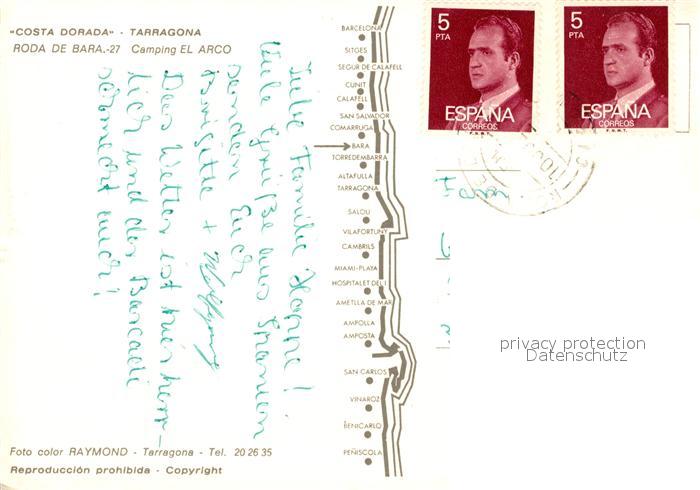 "COSTA DORADA" - TARRAGONA
RODA DE BARA.-27 Camping EL ARCO
Liebe Familie Hoppe!
Viele Grüße aus Spanien
senden Euch
Brigitte + Wolfgang
Das Wetter ist hier herr-
lich und der Bacardi
schmeckt auch!
Foto color RAYMOND - Tarragona - Tel. 20 26 35
Reproducción prohibida - Copyright
BARCELONA
SITGES
SEGUR DE CALAFELL
CUNIT
CALAFELL
SAN SALVADOR
COMARRUGA
BARA
TORREDEMBARRA
ALTAFULLA
TARRAGONA
SALOU
VILAFORTUNY
CAMBRILS
MIAMI-PLAYA
HOSPITALET DEL I.
AMETLLA DE MAR
AMPOLLA
AMPOSTA
SAN CARLOS
VINAROZ
BENICARLO
PEÑISCOLA
5
PTA
ESPAÑA
CORREOS
F.N.M.T.
5
PTA
ESPAÑA
CORREOS
F.N.M.T.
Fam.
privacy protection
Datenschutz